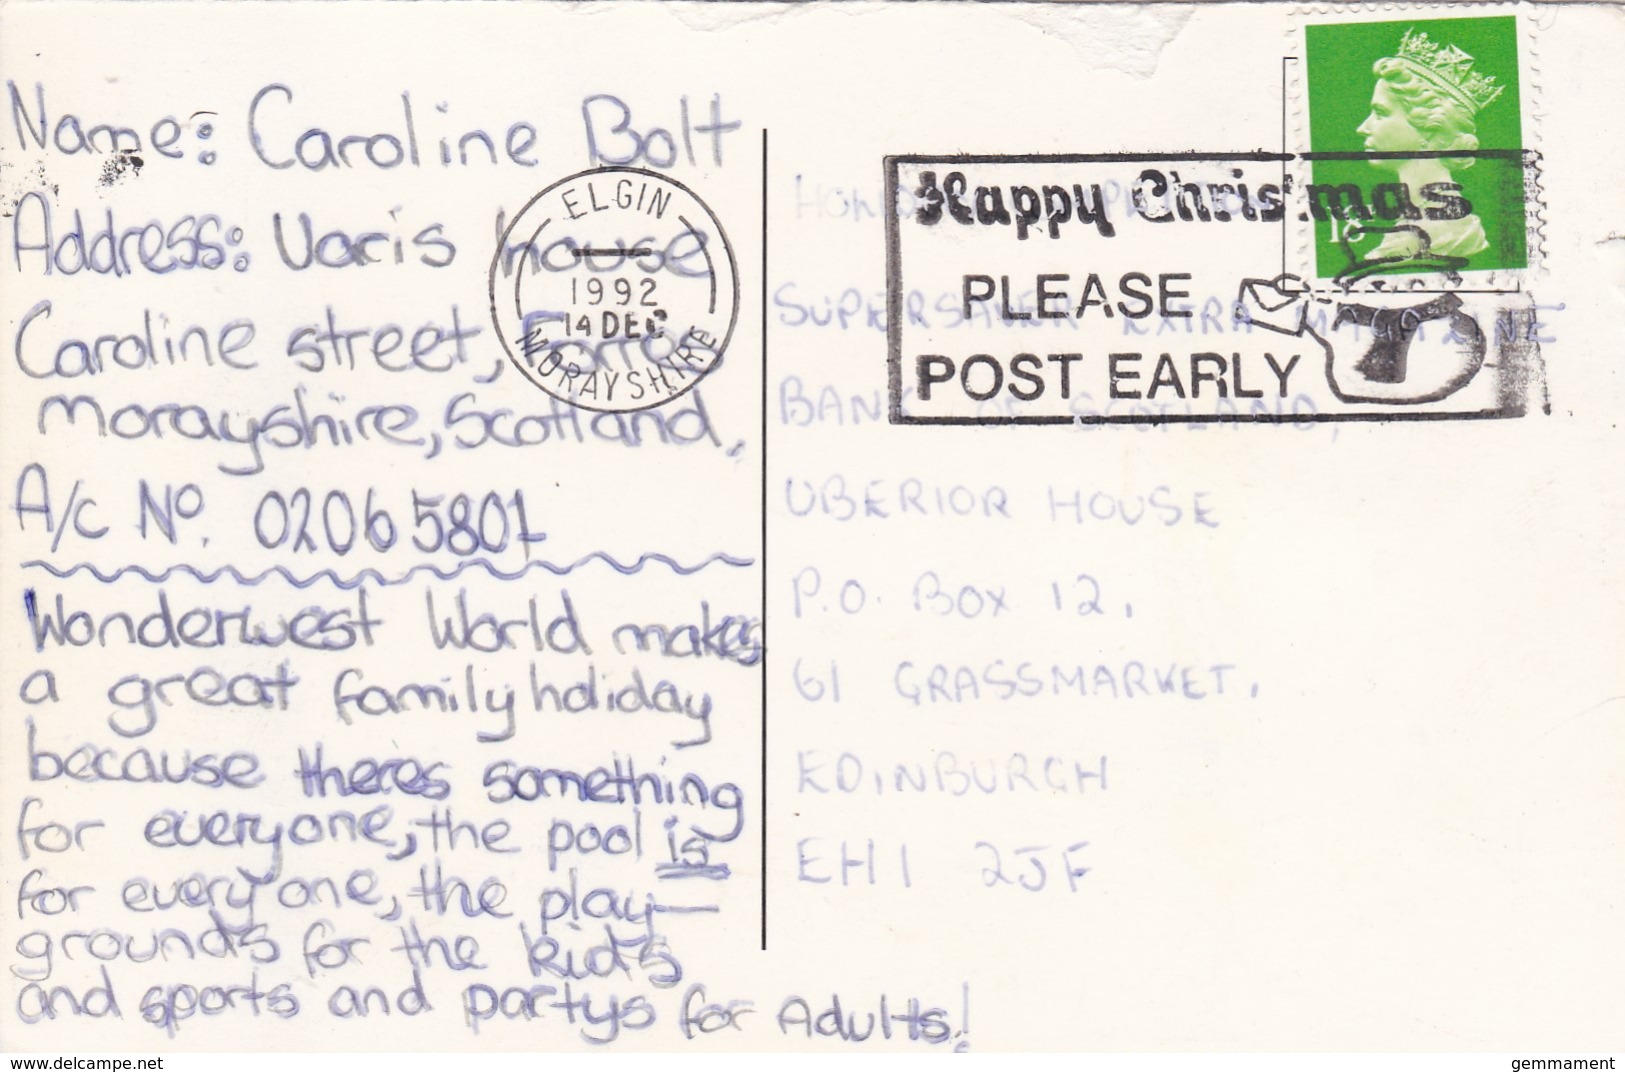 Name: Caroline Bolt
Address: Varis house
Caroline street, Forres
Morayshire, Scotland.
A/c No. 02065801
Wonderwest World makes
a great family holiday
because theres something
for everyone, the pool is
for every one, the play—
grounds for the kids
and sports and partys for Adults!
ELGIN
1992
14 DEC
MORAYSHIRE
Happy Christmas
PLEASE
POST EARLY
SUPERSAVER EXTRA MAGAZINE
BANK OF SCOTLAND,
UBERIOR HOUSE
P.O. BOX 12,
61 GRASSMARKET,
EDINBURGH
EH1 2JF
www.delcampe.net
gemmament